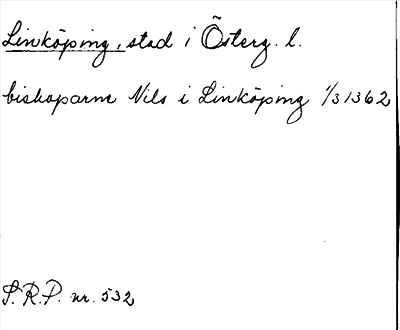 Linköping, stad i Österg. l.
biskoparna Nils i Linköping 1/3 1362
S.R.P. nr. 532